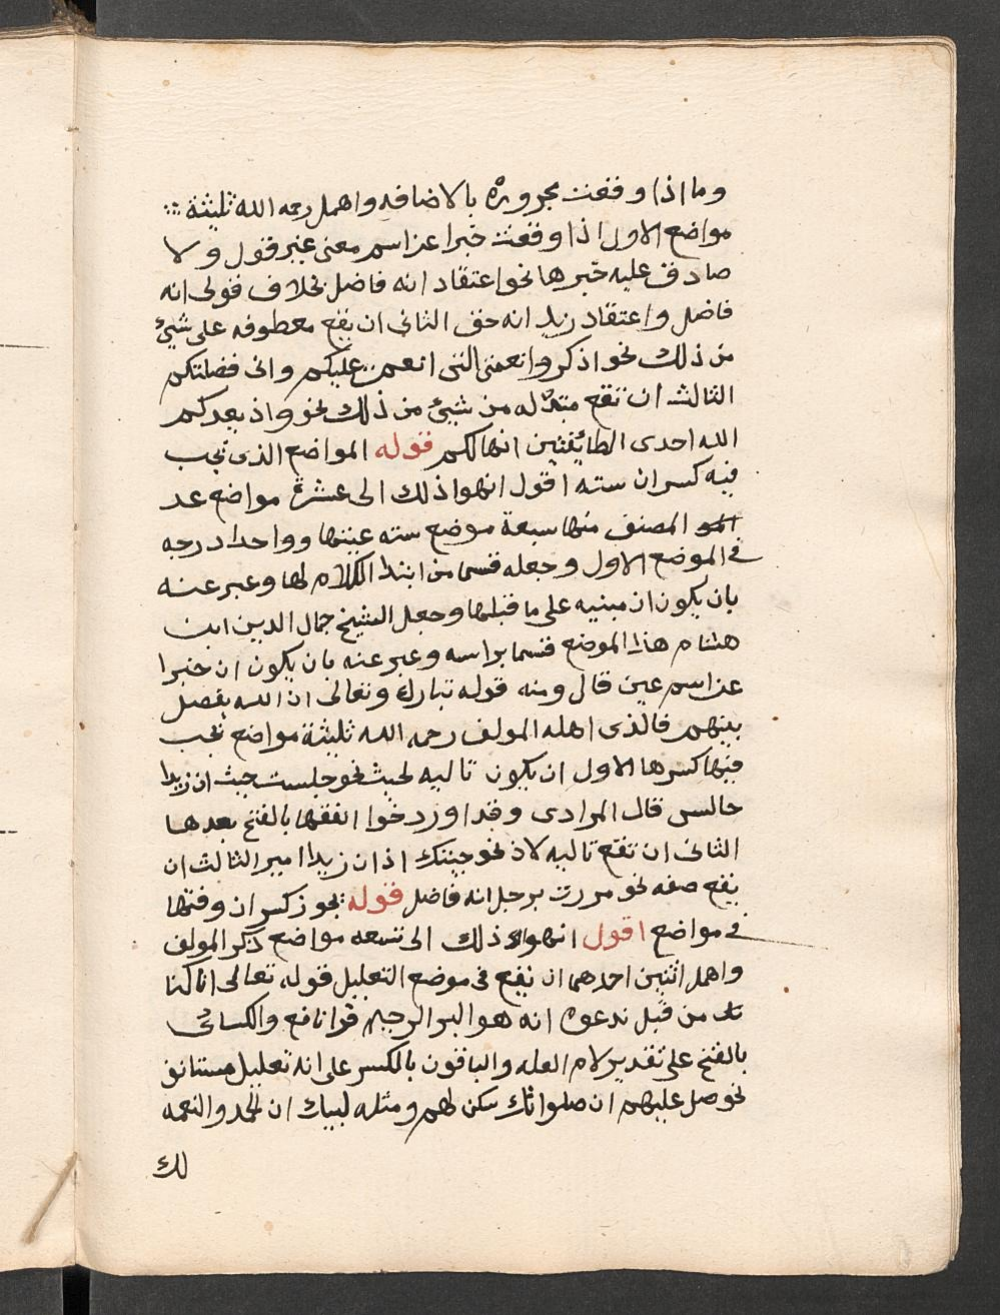 وما اذا وقعت مجرورة بالاضافه واهمل رحمه الله ثلیثة
مواضع الاول اذا وقعت خبرا عن اسم معنى غير قول ولا
صادق عليه خبرها نحو اعتقاد انه فاضل بخلاف قولى انه
فاضل واعتقاد زيد انه حق الثانى ان يقع معطوفه على شيئ
من ذلك نحو اذكروا نعمتى التى انعمت عليكم وانى فضلتكم
الثالث ان تقع مبدله من شيئ من ذلك نحو واذ يعدكم
الله احدى الطايفتين انها لكم قوله المواضع الذى تجب
فيه كسر ان سته اقول انهوا ذلك الى عشرة مواضع عد
المصنف منها سبعة موضع سته عينها وواحدا درجه
فى الموضع الاول وجعله قسما من ابتدا الكلام لها وعبر عنه
بان يكون ان مبنيه على ما قبلها وجعل الشيخ جمال الدين ابن
هشام هذا الموضع قسما براسه وعبر عنه بان يكون ان خبرا
عن اسم عين قال ومنه قوله تبارك وتعالى ان الله يفصل
بينهم فالذى اهله المولف رحمه الله ثليثة مواضع تجب
فيها كسرها الاول ان يكون تاليه لحيث نحو جلست حيث ان زيدا
جالس قال المرادى وقد اورد خوا الفقها بالفتح بعدها
الثانى ان تقع تاليه لاذ نحو جيتك اذ ان زيدا امير الثالث ان
يقع صفه نحو مررت برجل انه فاضل قوله يجوز كسر ان وفتحها
فى مواضع اقول انهوا ذلك الى تسعه مواضع ذكر المولف
واهمل اثنين احدهما ان يقع فى موضع التعليل قوله تعالى انا كنا
من قبل ندعوه انه هو البر الرحيم قرا نافع والكسائى
بالفتح على تقدير لام العله والباقون بالكسر على انه تعليل مستانف
نحو صل عليهم ان صلواتك سكن لهم ومثله لبيك ان الحمد والنعمه
لك